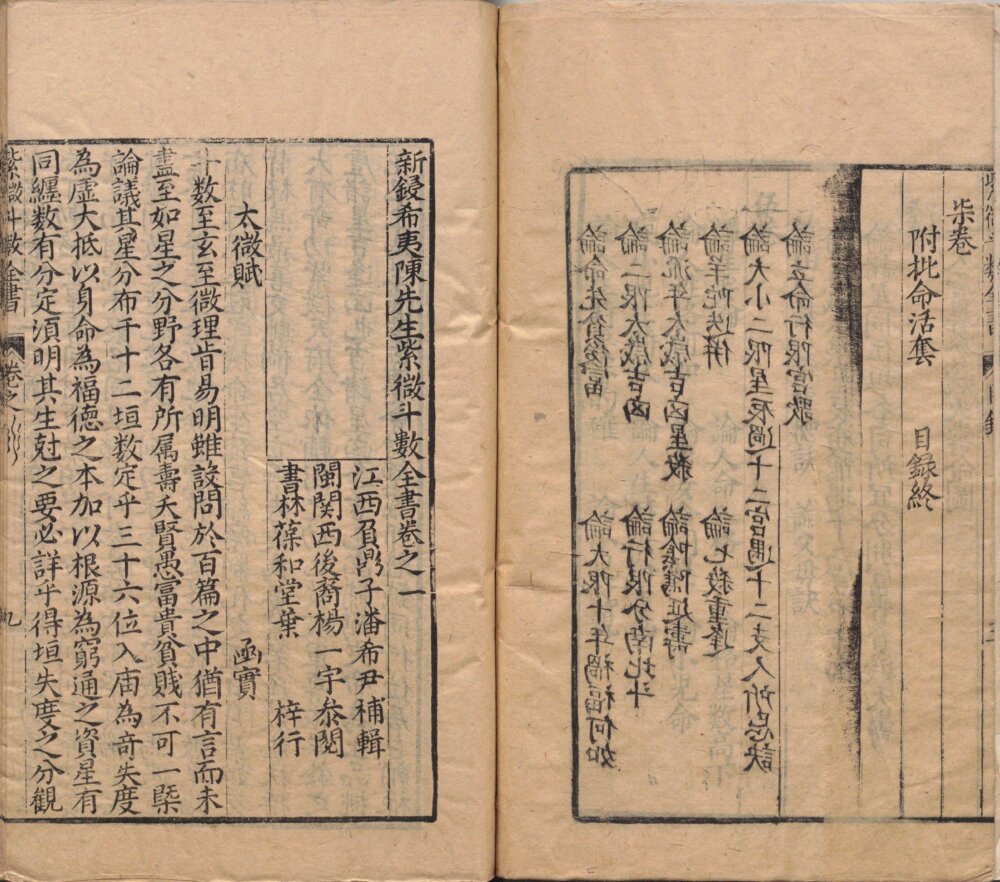 柒卷
附批命活套 目録終
論立命行限宮歌
論大小二限星辰過十二宮遇十二支人所忌訣
論羊陀迭併 論七殺重逢
論流年太歲吉凶星殺 論陰隲延壽
論二限太歲吉凶 論行限分南北斗
論命先貧後富 論大限十年禍福何如
新鋟希夷陳先生紫微斗數全書卷之一
江西負鼎子潘希尹補輯
閩関西後裔楊一宇叅閱
書林葆和堂葉 梓行
太微賦 函實
斗数至玄至微理㫖易明雖設問於百篇之中猶有言而未
盡至如星之分野各有所属壽夭賢愚富貴貧賤不可一槩
論議其星分布千十二垣数定乎三十六位入庙為奇失度
為虛大抵以身命為福德之本加以根源為窮通之資星有
同纏数有分定湏明其生尅之要必詳乎得垣失度之分觀
紫微斗數全書 卷之 九